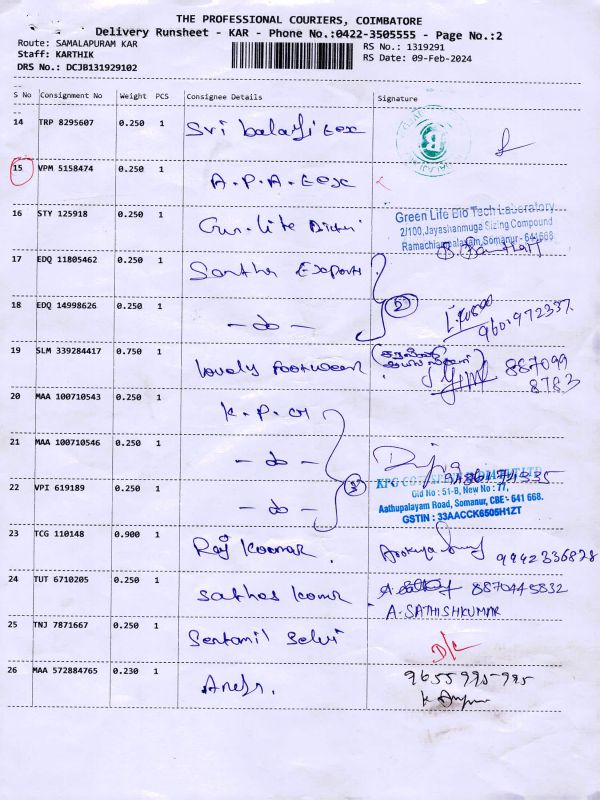 THE PROFESSIONAL COURIERS, COIMBATORE
Delivery Runsheet - KAR - Phone No.:0422-3505555 - Page No.:2
Route: SAMALAPURAM KAR
RS No.: 1319291
Staff: KARTHIK
RS Date: 09-Feb-2024
DRS No.: DCJB131929102
S No Consignment No Weight PCS Consignee Details Signature
14 TRP 8295607 0.250 1 Sri balaji tex
15 VPM 5158474 0.250 1 A.P.A. tex
16 STY 125918 0.250 1
Green Life Bio Tech Laboratory
2/100, Jayashanmuga Sizing Compound
Ramachiampalayam, Somanur - 641668
17 EDQ 11805462 0.250 1 Santha Exports
18 EDQ 14998626 0.250 1 - do - 2
9601972337
19 SLM 339284417 0.750 1 lovely footwear
887099
8783
20 MAA 100710543 0.250 1 K.P.G
21 MAA 100710546 0.250 1 - do -
22 VPI 619189 0.250 1 - do - 3
Old No : 51-B, New No : 77,
Aathupalayam Road, Somanur, CBE - 641 668.
GSTIN : 33AACCK6505H1ZT
23 TCG 110148 0.900 1 Raj Koomar. 9942336828
24 TUT 6710205 0.250 1 Sathes Komr 8870445832
A-SATHISHKUMAR
25 TNJ 7871667 0.250 1 Sentamil Selvi D/L
26 MAA 572884765 0.230 1
9655995-995